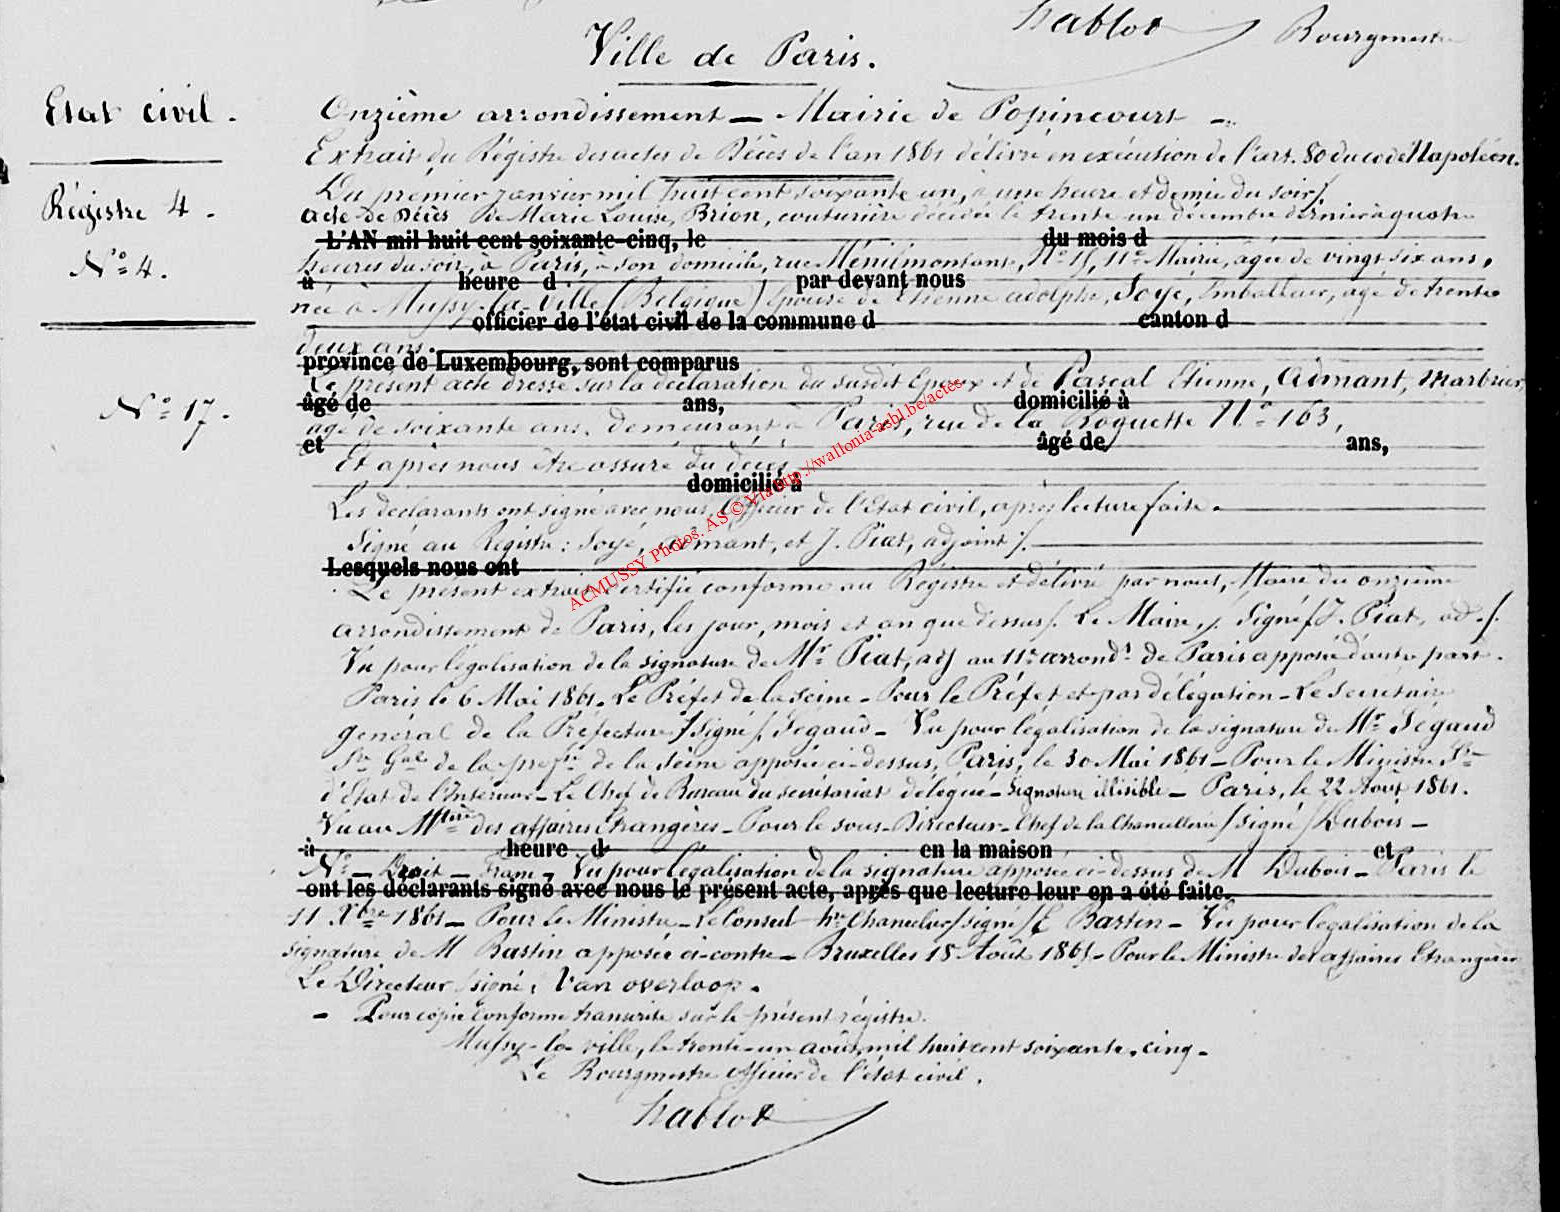 hablot Bourgmestre
Ville de Paris.
Etat civil.
Onzième arrondissement — Mairie de Popincourt —
Extrait du Régistre des actes de Décès de l'an 1861 délivré en exécution de l'art. 80 du code Napoléon.
Régistre 4.
Du premier janvier mil huit cent soixante un, à une heure et demie du soir/.
acte de Décès de Marie Louise, Brion, couturière décédée le trente un décembre dernier à quatre
L'AN mil huit cent soixante-cinq, le du mois d
N° 4.
heures du soir, à Paris, à son domicile, rue Ménilmontant, N° 15, 11e Mairie, agée de vingt six ans,
à heure d par devant nous
née à Mussy-la-Ville (Belgique) Epouse de Etienne adolphe, Soyé, Emballeur, agé de trente
officier de l'état civil de la commune d canton d
deux ans.
province de Luxembourg, sont comparus
Le présent acte dressé sur la déclaration du susdit Epoux et de Pascal Etienne, Admant, Marbrier,
âgé de ans, domicilié à
N° 17.
agé de soixante ans, demeurant à Paris, rue de la Roquette N° 163,
et âgé de ans,
Et après nous être assuré du décès
domicilié à
Les déclarants ont signé avec nous, Officier de l'Etat civil, après lecture faite.
Signé au Régistre: Soyé, Admant, et J. Piat, adjoint/.
Lesquels nous ont
Le présent extrait certifié conforme au Régistre et délivré par nous, Maire du onzième
arrondissement de Paris, les jour, mois et an que dessus/. Le Maire, /. Signé/J. Piat, ad./.
Vu pour légalisation de la signature de Mr Piat, adj au 11e arrondt de Paris apposée d'autre part.
Paris le 6 Mai 1861. Le Préfet de la Seine - Pour le Préfet et par délégation - Le Secrétaire
général de la Préfecture/Signé/. Ségaud - Vu pour légalisation de la signature de Mr Ségaud
Sre Gal de la préfre de la Seine apposée ci-dessus, Paris, le 30 Mai 1861 - Pour le Ministre Sre
d'Etat de l'Intérieur - Le Chef de Bureau du secrétariat délégué - Signature illisible - Paris, le 22 Août 1861.
Vu au Mtère des affaires Etrangères - Pour le sous-Directeur - Chef de la Chancellerie/signé/Dubois -
à heure d en la maison et
N° — Droit — Franc - Vu pour légalisation de la signature apposée ci-dessus de M Dubois - Paris le
ont les déclarants signé avec nous le présent acte, après que lecture leur en a été faite.
11 Xbre 1861 - Pour le Ministre - Le Conseil hre Chancelier/signé/E Bastin - Vu pour légalisation de la
signature de M Bastin apposée ci-contre - Bruxelles 18 Août 1865 - Pour le Ministre des affaires Etrangères
Le Directeur /signé, Van overloop.
- Pour copie conforme transcrite sur le présent régistre.
Mussy-la-ville, le trente-un août mil huit cent soixante-cinq -
Le Bourgmestre officier de l'état civil.
hablot
ACMUSSY Photos. AS © Via http://wallonia-asbl.be/actes